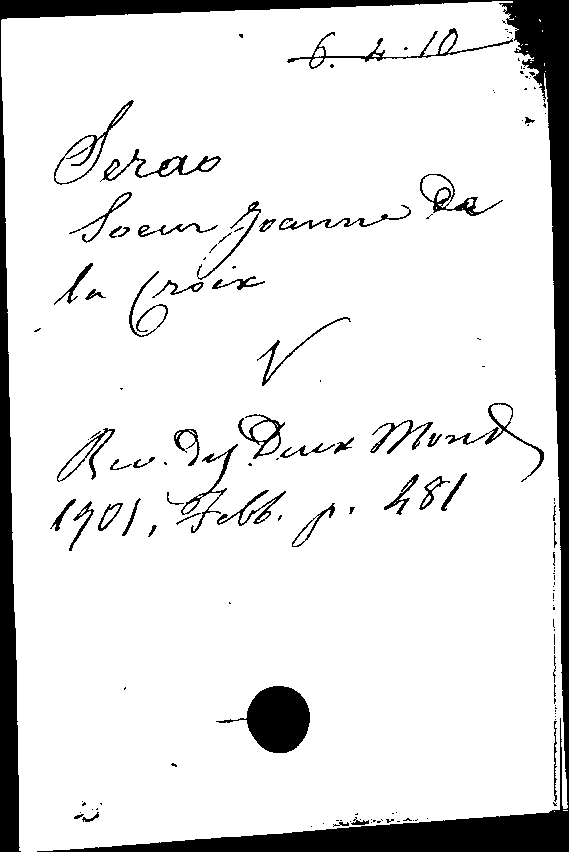 6. 4. 10
Serao
Soeur Joanne Da
la Croix
V
Rev. des Deux Mond
1901, Febb. p. 481